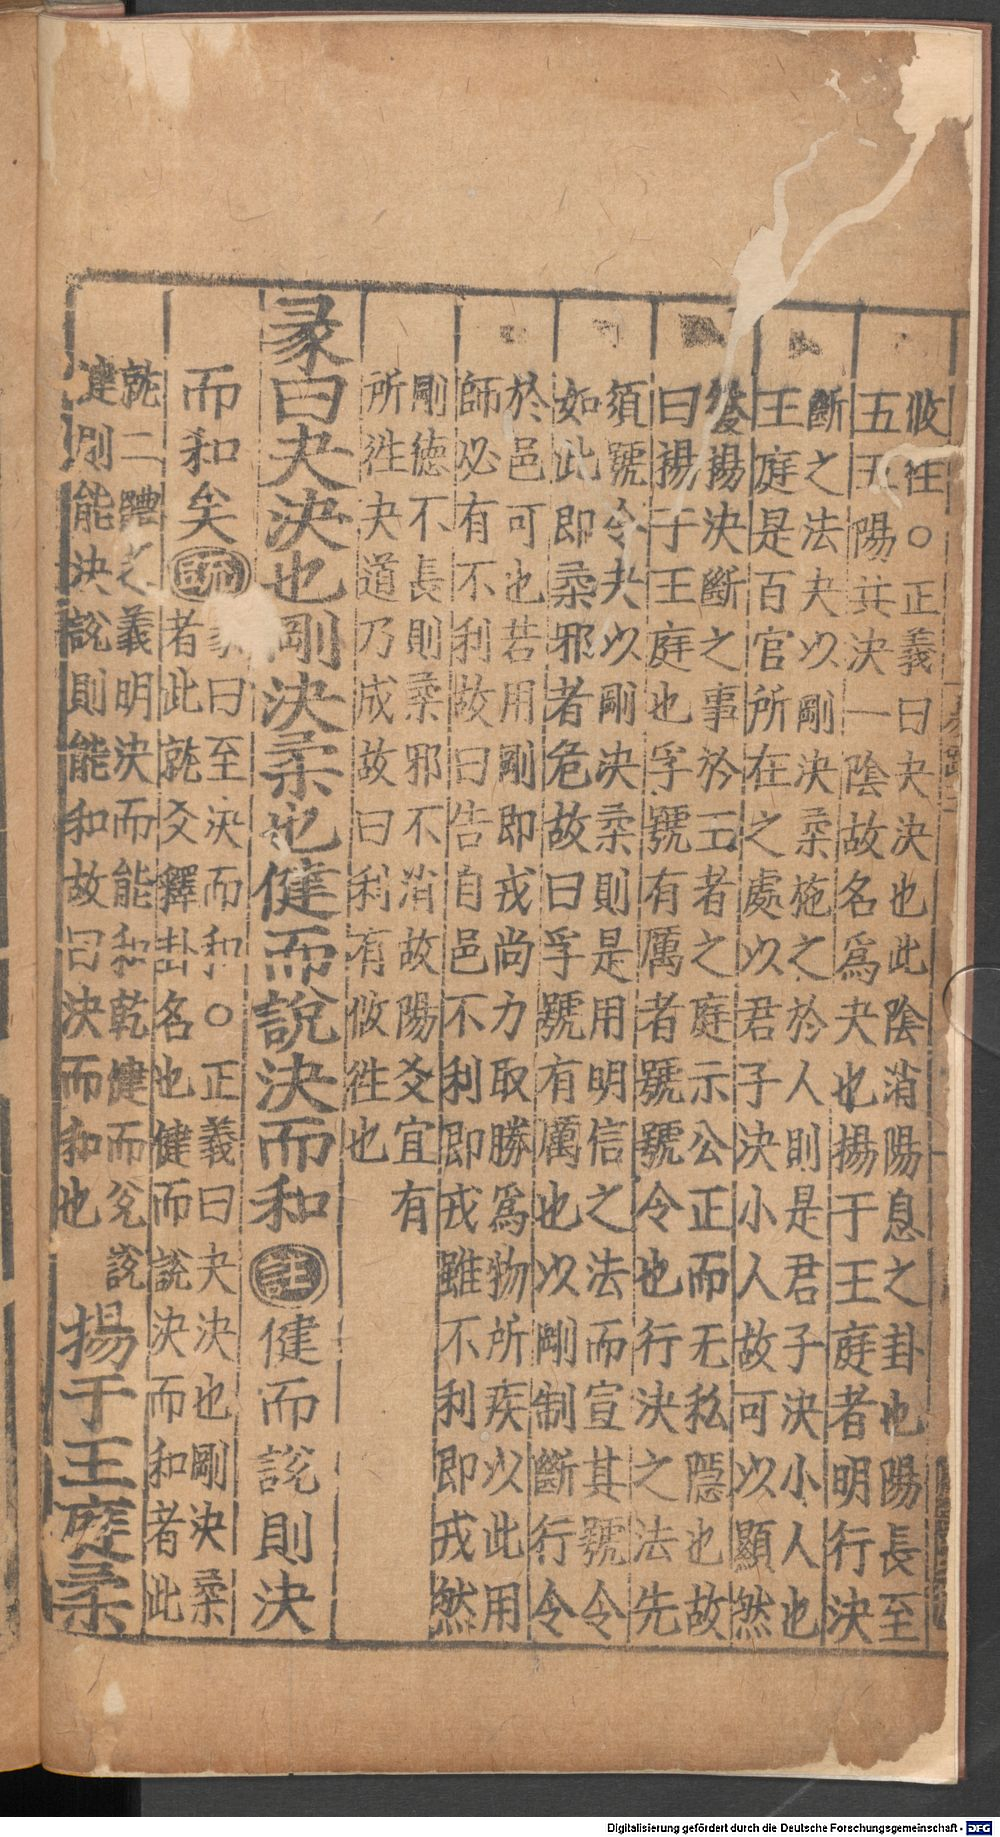 攸往○正義曰夬決也此陰消陽息之卦也陽長至
五五陽共決一陰故名爲夬也揚于王庭者明行決
斷之法夬以剛決柔施之於人則是君子決小人也
王庭是百官所在之處以君子決小人故可以顯然
發揚決斷之事於王者之庭示公正而无私隱也故
曰揚于王庭也孚號有厲者號號令也行決之法先
須號令夬以剛決柔則是用明信之法而宣其號令
如此即柔邪者危故曰孚號有厲也以剛制斷行令
於邑可也若用剛即戎尚力取勝爲物所疾以此用
師必有不利故曰告自邑不利即戎雖不利即戎然
剛德不長則柔邪不消故陽爻宜有
所往夬道乃成故曰利有攸往也
彖曰夬決也剛決柔也健而說決而和 註 健而說則決
而和矣 疏 彖曰至決而和○正義曰夬決也剛決柔
者此就爻釋卦名也健而說決而和者此
就二體之義明決而能和乾健而兌說
健則能決說則能和故曰決而和也 揚于王庭柔
Digitalisierung gefördert durch die Deutsche Forschungsgemeinschaft - DFG